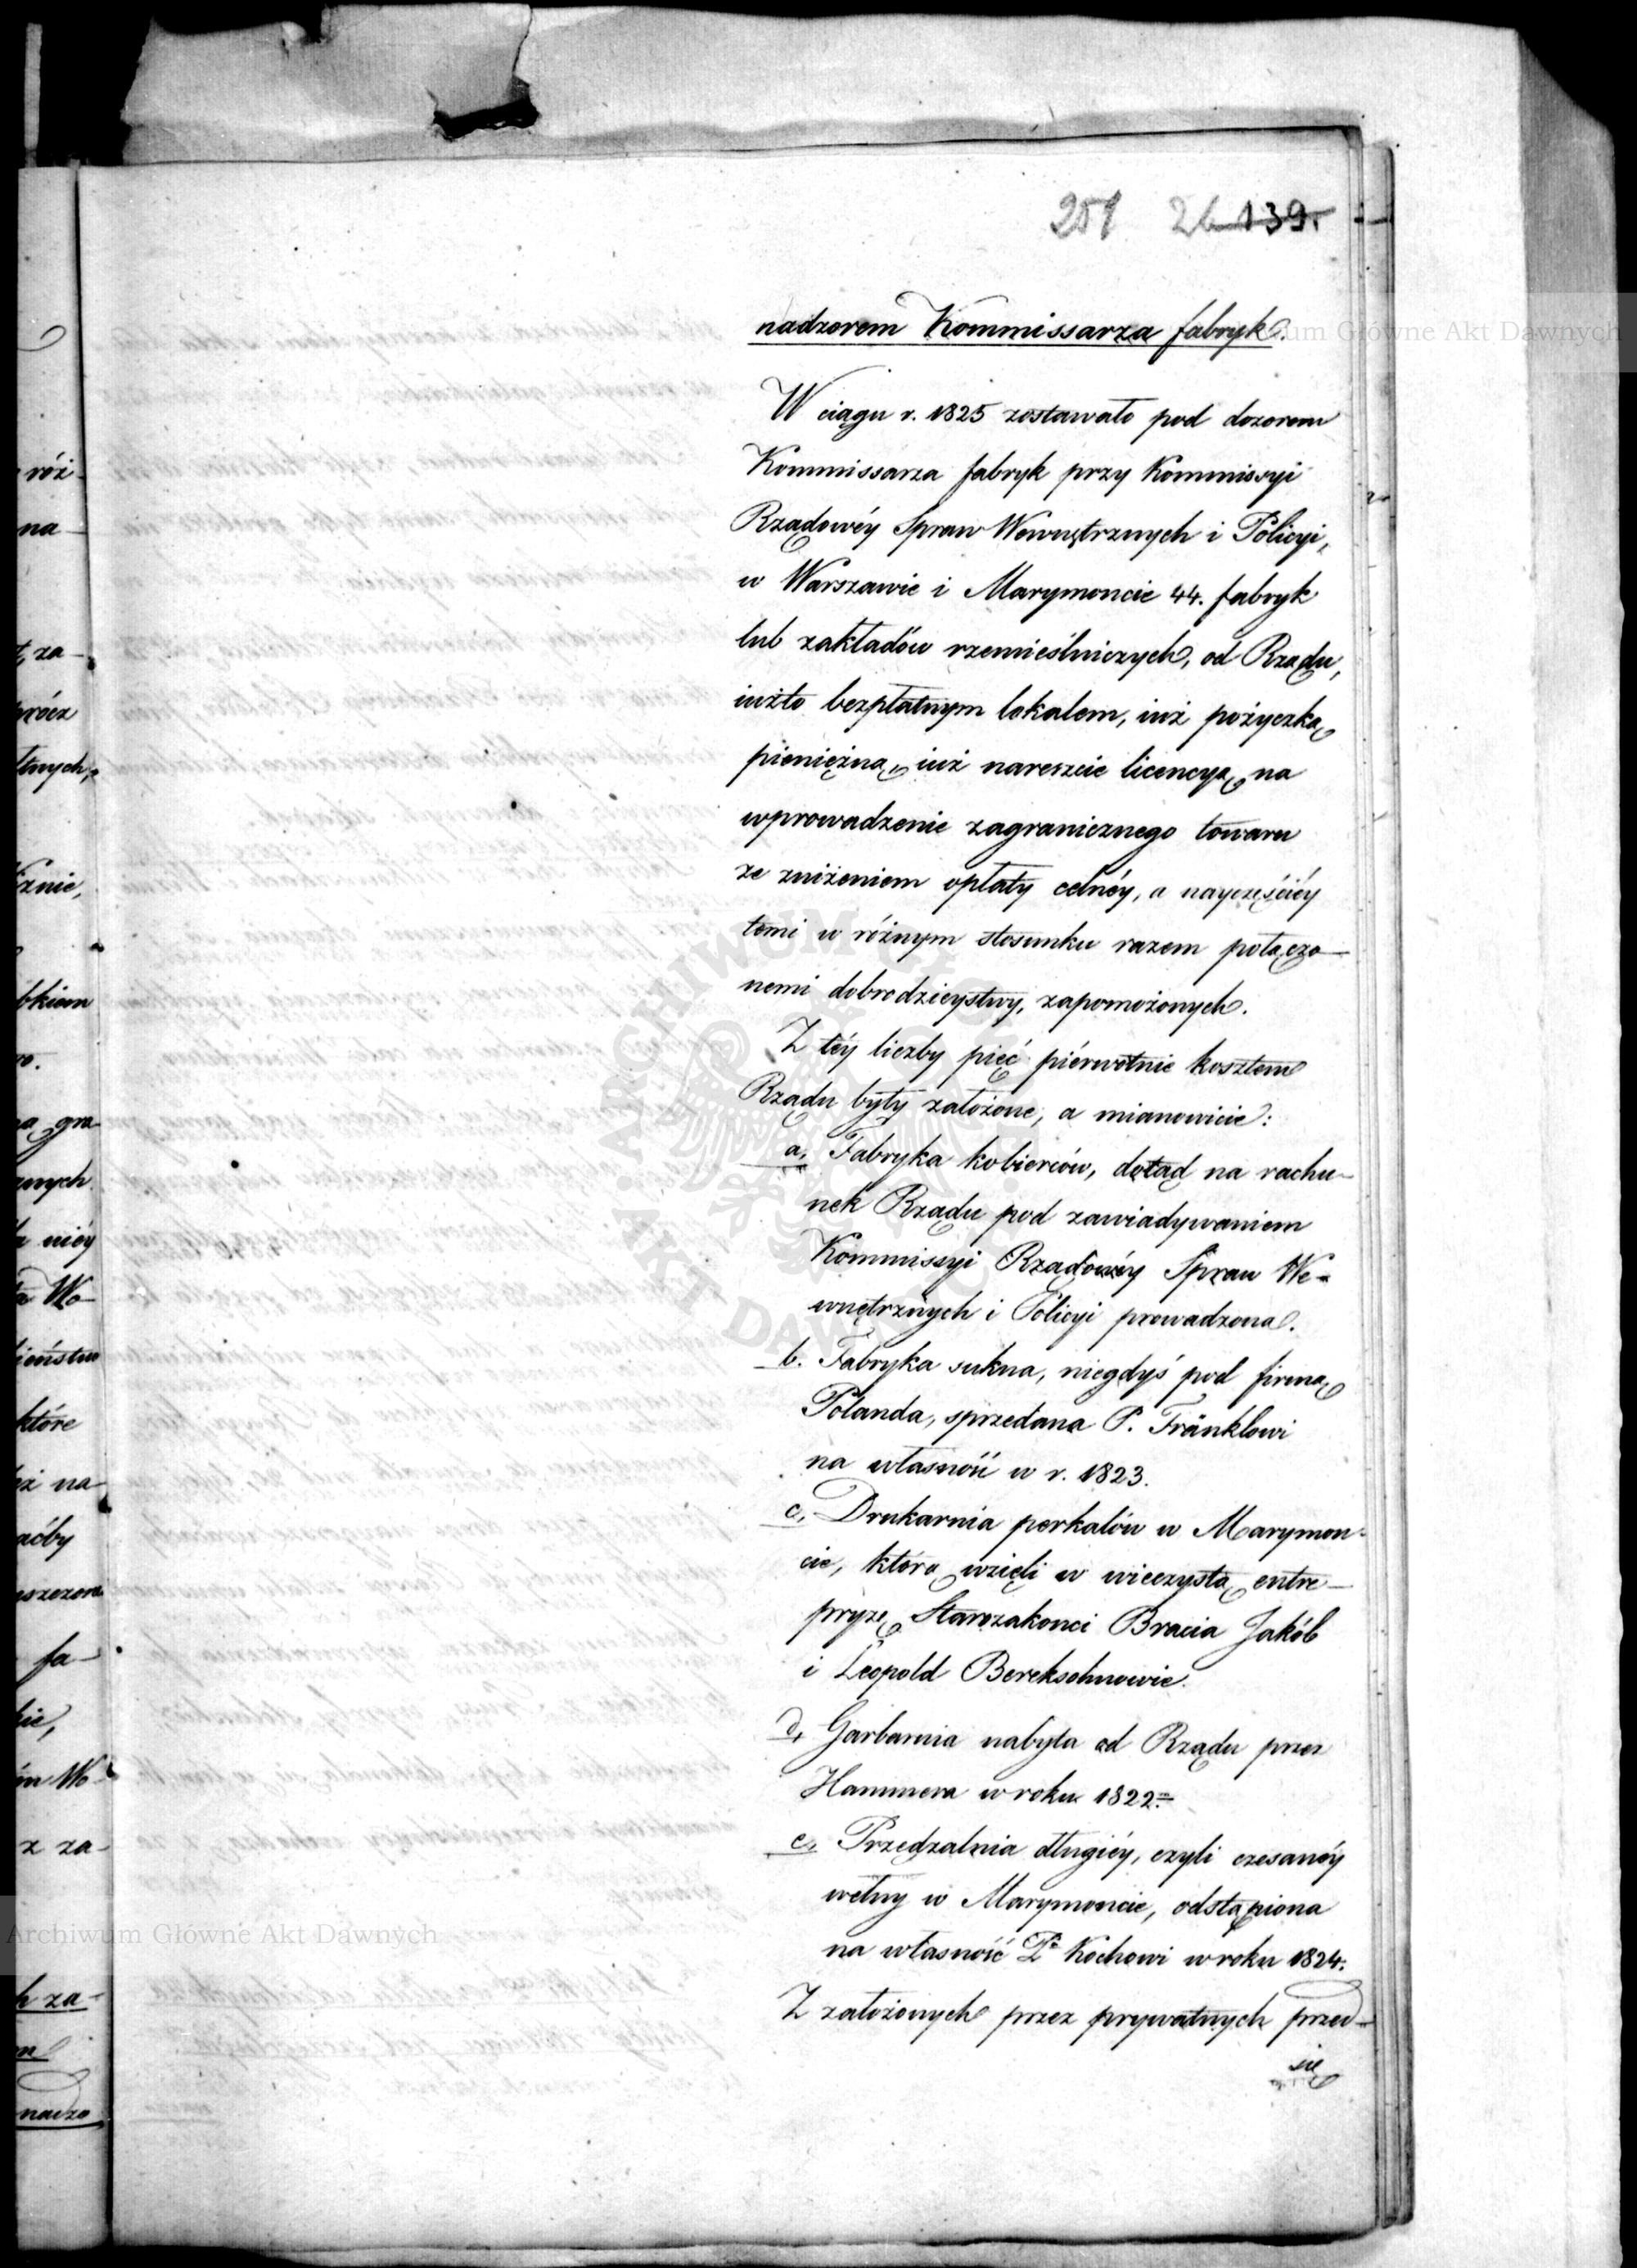 251 26 139.
nadzorem Kommissarza fabryk.
W ciągu r. 1825 zostawało pod dozorem
Kommissarza fabryk przy Kommissyi
Rządowéy Spraw Wewnętrznych i Policyi,
w Warszawie i Marymoncie 44. fabryk
lub zakładów rzemieślniczych, od Rządu,
iużto bezpłatnym lokalem, iuż pożyczką
pieniężną, iuż nareszcie licencyą na
wprowadzenie zagranicznego towaru
ze zniżeniem opłaty celnéy, a nayczęściéy
temi w różnym stosunku razem połączo-
nemi dobrodzieystwy, zapomożonych.
Z téy liczby pięć piérwotnie kosztem
Rządu były założone, a mianowicie:
a, Fabryka kobierców, dotąd na rachu-
nek Rządu pod zawiadywaniem
Kommissyi Rządowéy Spraw We-
wnętrznych i Policyi prowadzona.
b. Fabryka sukna, niegdyś pod firmą
Polanda, sprzedana P. Fränklowi
na własność w r. 1823.
c, Drukarnia perkalów w Marymon-
cie, którą wzięli w wieczystą entre-
pryzę Starozakonci Bracia Jakób
i Leopold Bereksohnowie.
d, Garbarnia nabyta od Rządu przez
Hammera w roku 1822.
e, Przędzalnia długiéy, czyli czesanéy
wełny w Marymoncie, odstąpiona
na własność Kochowi w roku 1824.
Z założonych przez prywatnych przed-
się
róż-
na
za-
prócz
tnych,
cznie,
bkiem
gra
znych
niéy
Wo-
które
na-
aćby
fa-
Wo-
z za-
za-
nadzo
Archiwum Główne Akt Dawnych
Archiwum Główne Akt Dawnych
ARCHIWUM GŁÓWNE AKT DAWNYCH